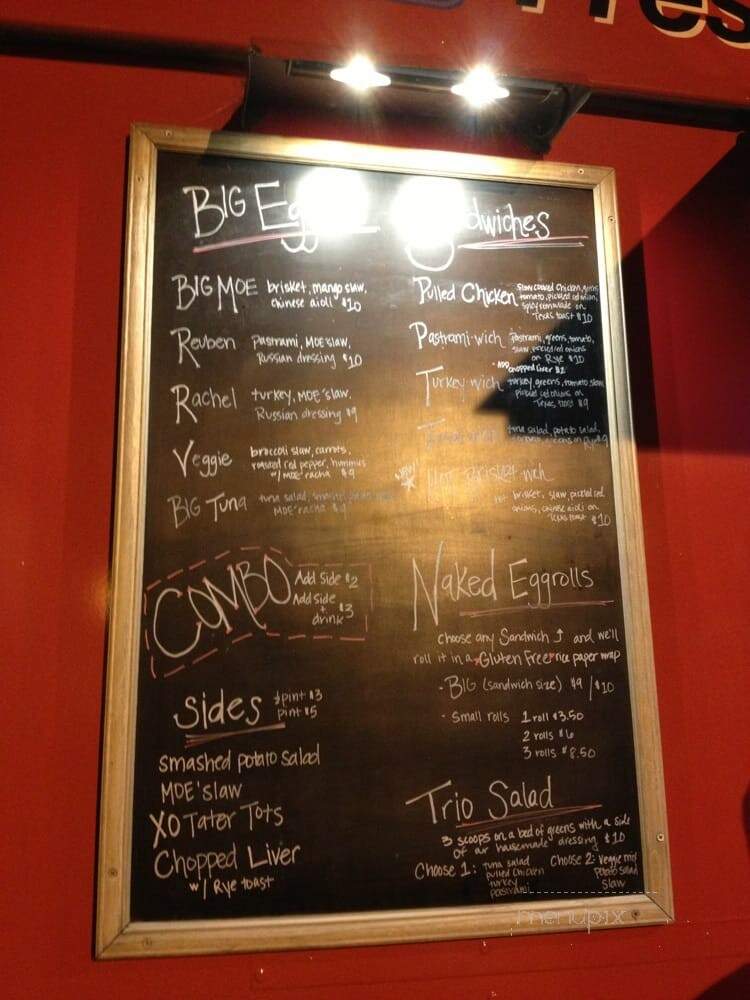 BIG Egg
BIG MOE brisket, mango slaw,
chinese aioli $10
Reuben pastrami, MOE'slaw,
Russian dressing $10
Rachel turkey, MOE'slaw,
Russian dressing $9
Veggie broccoli slaw, carrots,
roasted red pepper, hummus
w/ MOE'racha $9
BIG Tuna tuna salad, smashed
MOE'racha $9
COMBO
Add side $2
Add side
+
drink $3
sides ½pint $3
pint $5
smashed potato salad
MOE'slaw
XO Tater Tots
Chopped Liver
w/ Rye toast
dwiches
Pulled Chicken slow cooked chicken, greens
tomato, pickled red onion,
spicy remoulade on
Texas toast $10
Pastrami-wich pastrami, greens, tomato,
slaw, pickled red onions
on Rye $10
• ADD chopped liver $2
Turkey-wich turkey, greens, tomato, slaw
pickled red onions on
Texas toast $9
tuna salad, potato salad,
greens on Rye $9
NEW
Hot Brisket-wich
hot brisket, slaw, pickled red
onions, chinese aioli on
Texas toast $10
Naked Eggrolls
choose any Sandwich ↑ and we'll
roll it in a *Gluten Free* rice paper wrap
• BIG (sandwich size) $9 / $10
• small rolls 1 roll $3.50
2 rolls $6
3 rolls $8.50
Trio Salad
3 scoops on a bed of greens with a side
of our housemade dressing $10
Choose 1: tuna salad
pulled chicken
turkey
pastrami
Choose 2: veggie mix
potato salad
slaw
menupix